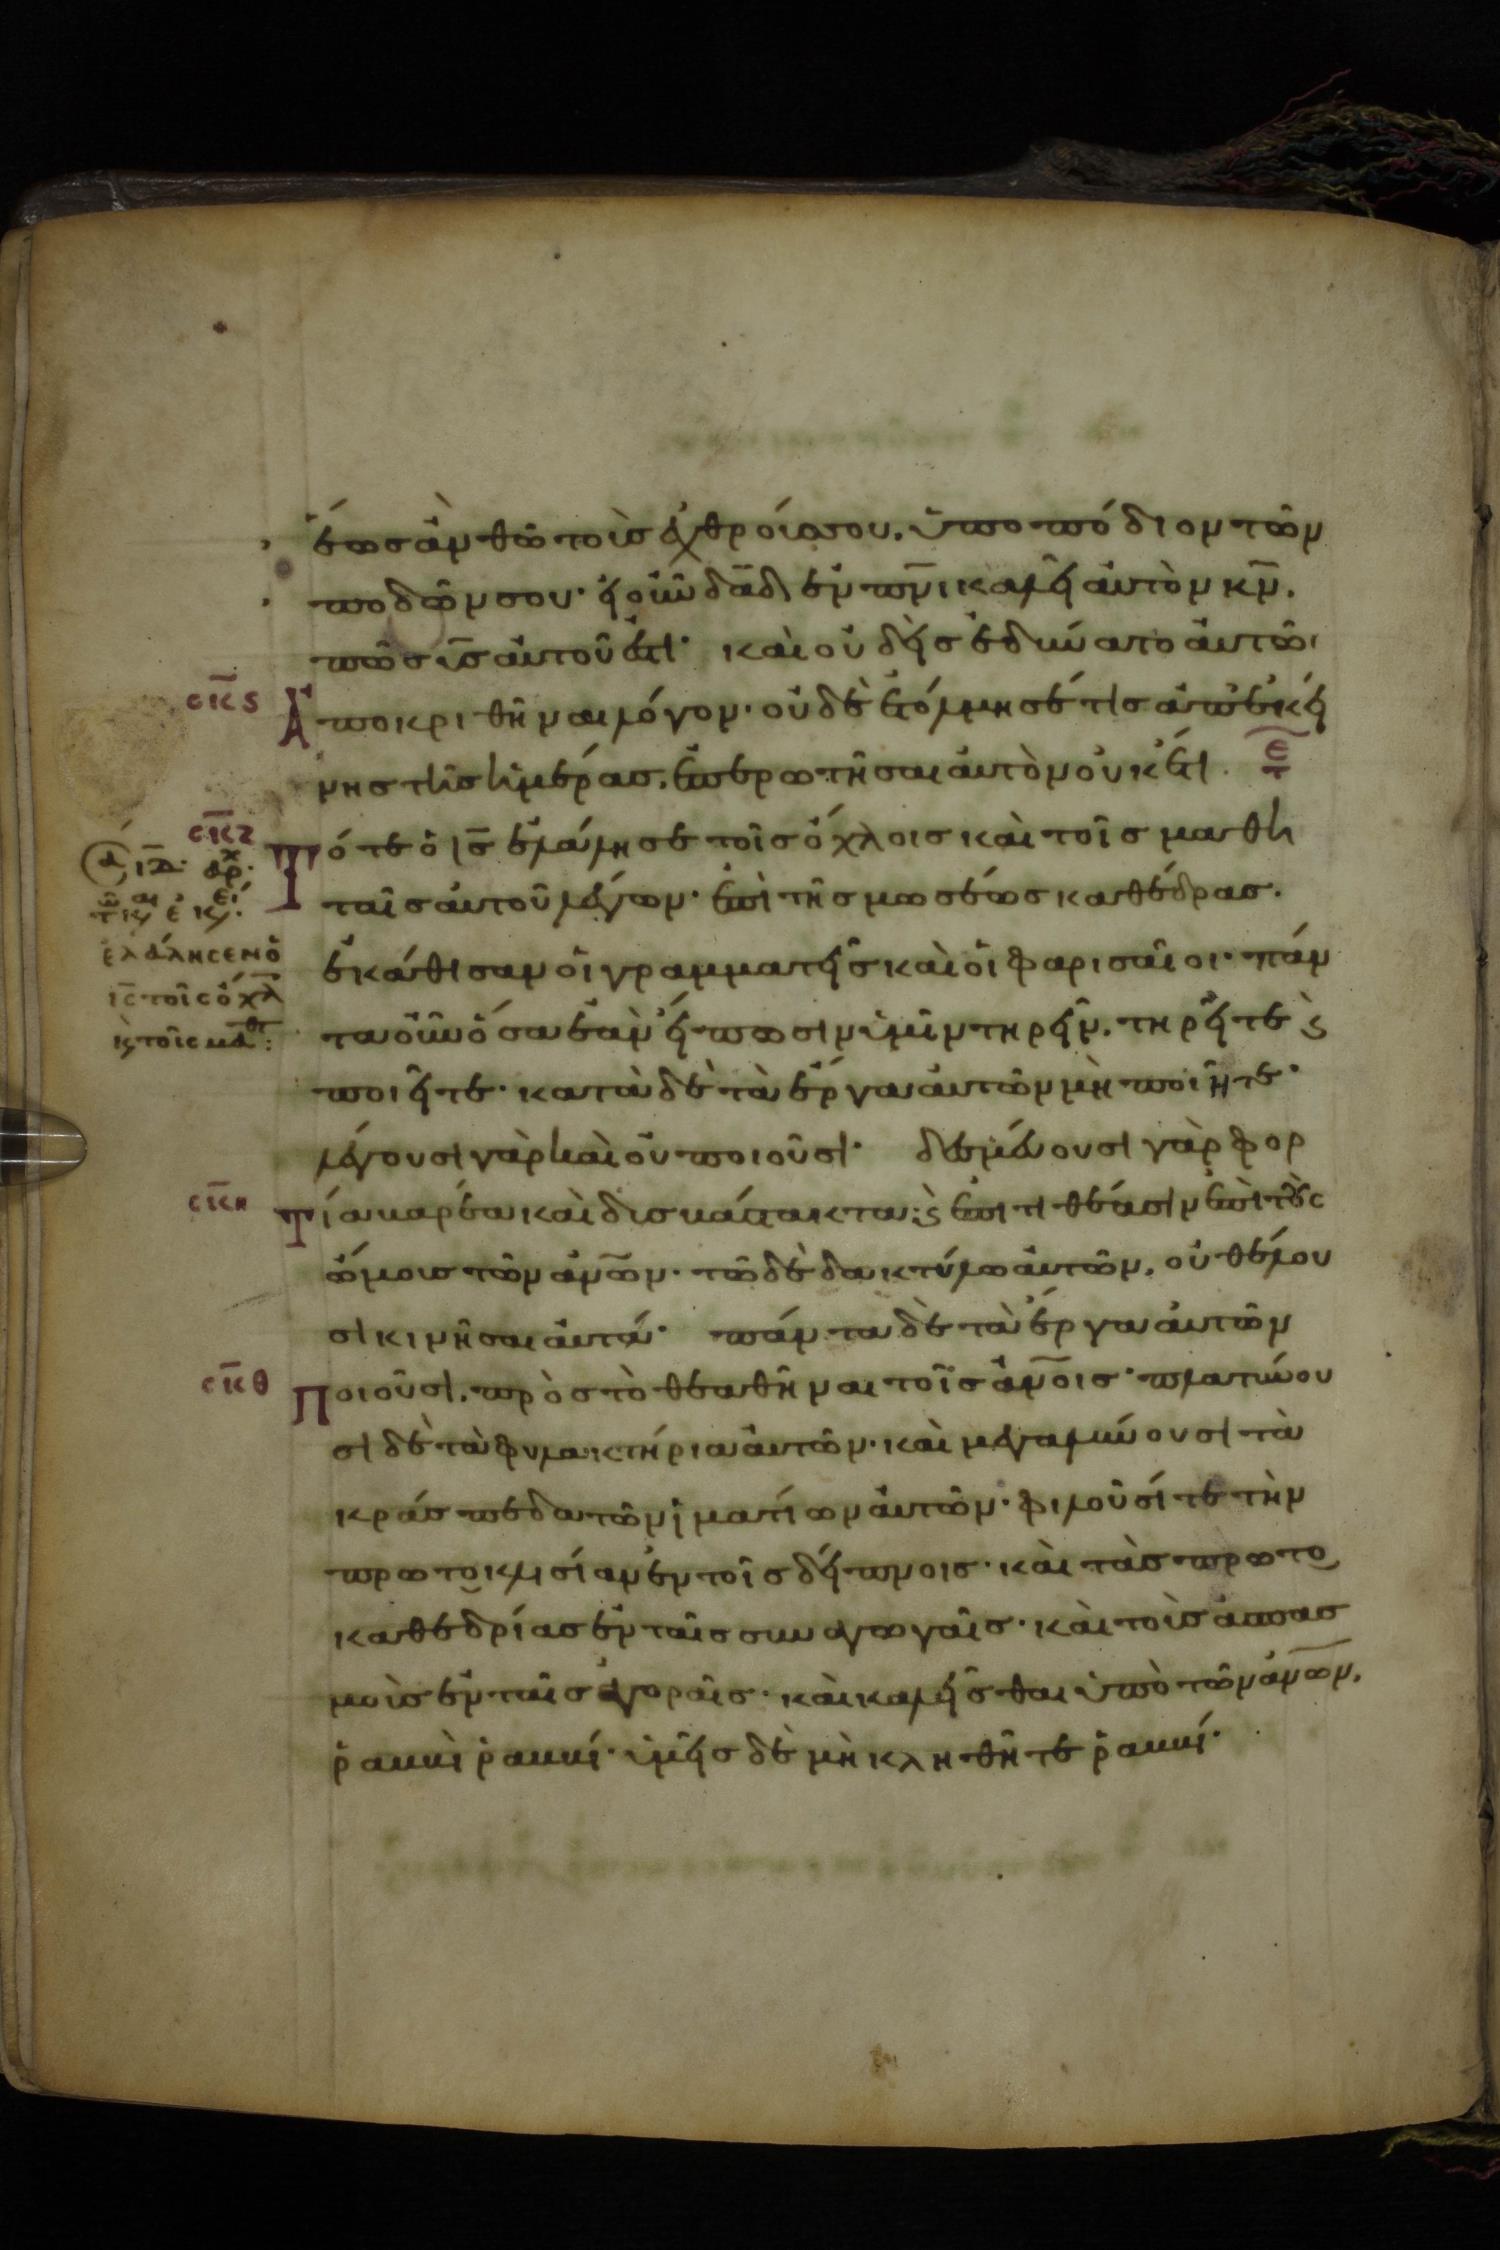 ἕωσ ἂν θῶ τοὺσ ἐχθρούσ σου, ὑποπόδιον τῶν
ποδῶν σου· εἰ οὖν δᾱδ ἐν πνῑ καλεῖ αὐτὸν κν̄,
πῶσ ῡσ αὐτοῦ ἐστι· καὶ οὐδεὶσ ἐδύνατο αὐτῶ
σκς Ἀποκριθῆναι λόγον· οὐδὲ ἐτόλμησέ τισ ἀπ' ἐκεί
νησ τῆσ ἡμέρασ, ἐπερωτῆσαι αὐτὸν οὐκέτι.
σκζ Τότε ὁ ις̄ ἐλάλησε τοῖσ ὄχλοισ καὶ τοῖσ μαθη
ταῖσ αὐτοῦ λέγων· ἐπὶ τῆσ μωσέωσ καθέδρασ.
ἐκάθισαν οἱ γραμματεῖσ καὶ οἱ φαρισαῖοι· πάν
τα οὖν ὅσα ἐὰν εἴπωσιν ὑμῖν τηρεῖν, τηρεῖτε ϗ
ποιεῖτε· κατὰ δὲ τὰ ἔργα αὐτῶν μὴ ποιῆτε·
λέγουσι γὰρ καὶ οὐ ποιοῦσι· δεσμεύουσι γὰρ φορ
σκη Τία βαρέα καὶ δυσβάστακτα· ϗ ἐπιτιθέασιν ἐπὶ τοὺς
ὤμουσ τῶν ἀνω̄ν· τῶ δὲ δακτύλω αὐτῶν, οὐ θέλου
σι κινῆσαι αὐτά· πάντα δὲ τὰ ἔργα αὐτῶν
σκθ Ποιοῦσι, πρὸσ τὸ θεαθῆναι τοῖσ ἀνο̄ισ· πλατύνου
σι δὲ τὰ φυλακτήρια αὐτῶν· καὶ μεγαλύνουσι τὰ
κράσπεδα τῶν ἱματίων αὐτῶν· φιλοῦσί τε τὴν
πρωτοκλισίαν ἐν τοῖσ δείπνοισ· καὶ τὰσ πρωτο
καθεδρίασ ἐν ταῖσ συναγωγαῖσ· καὶ τοὺσ ἀσπασ
μοὺσ ἐν ταῖσ ἀγοραῖσ· καὶ καλεῖσθαι ὑπὸ τῶν ἀνω̄ν,
ῥαββὶ ῥαββί· ὑμεῖσ δὲ μὴ κληθῆτε ῥαββί·
ἐλάλησεν ὁ
ις̄ τοῖς ὄχλ
ϗ τοῖς μαθ: